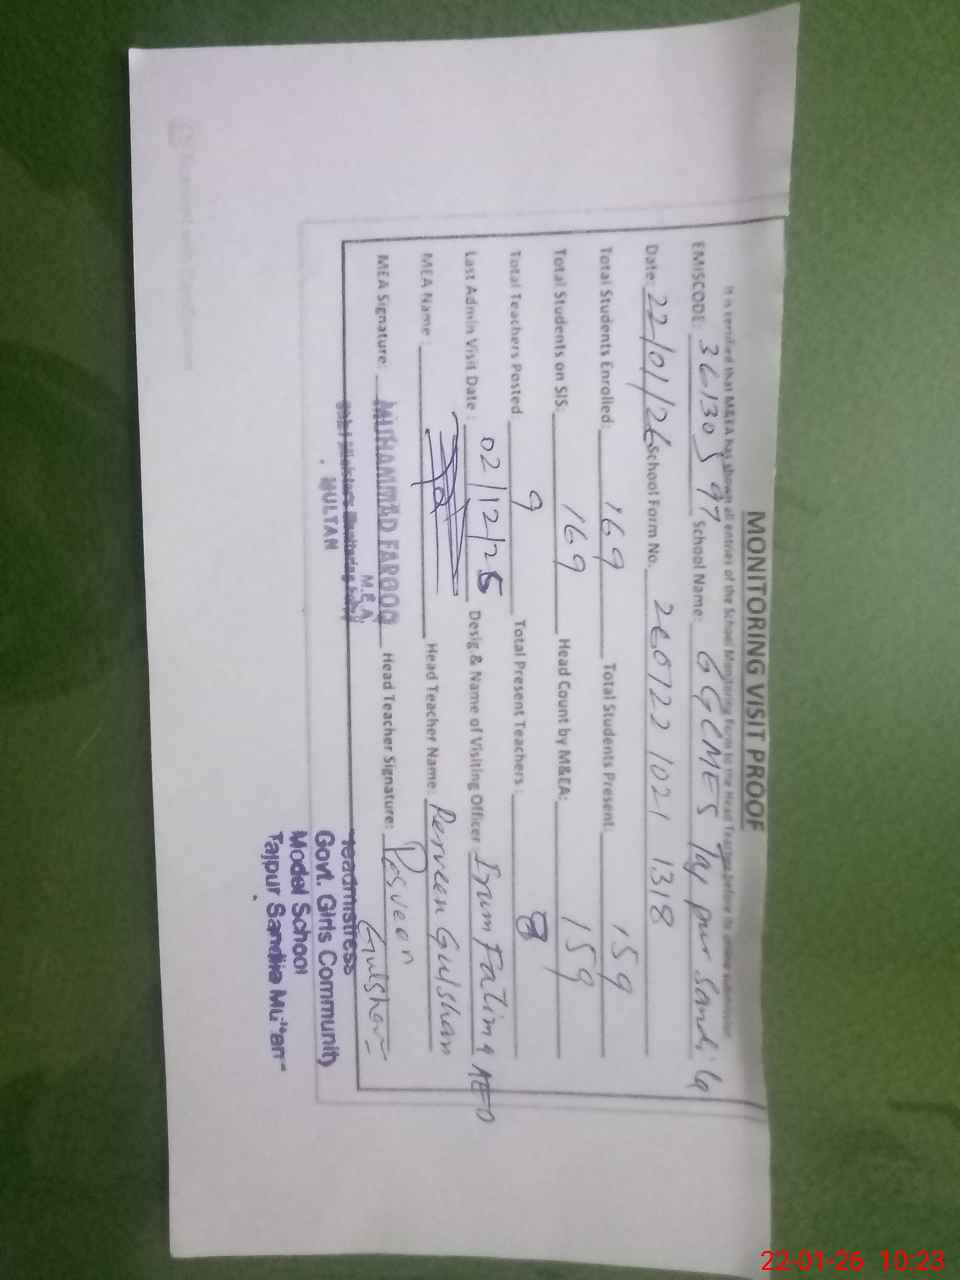 MONITORING VISIT PROOF
It is certified that M&EA has shown all entries of the School Monitoring Form to the Head Teacher before its online submission
EMISCODE: 36130597 School Name: GGCMES Taj pur Sandila
Date: 22/01/26 School Form No. 260122 1021 1318
Total Students Enrolled: 169 Total Students Present: 159
Total Students on SIS: 169 Head Count by M&EA: 159
Total Teachers Posted 9 Total Present Teachers: 8
Last Admin Visit Date: 02/12/25 Desig & Name of Visiting Officer Irum Fatima AEO
MEA Name: Head Teacher Name: Perveen Gulshan
MEA Signature: MUHAMMAD FAROOQ Head Teacher Signature: Perveen Gulshan
M.E.A
MULTAN
Headmistress
Govt. Girls Community
Model School
Tajpur Sandila Multan
22-01-26 10:23